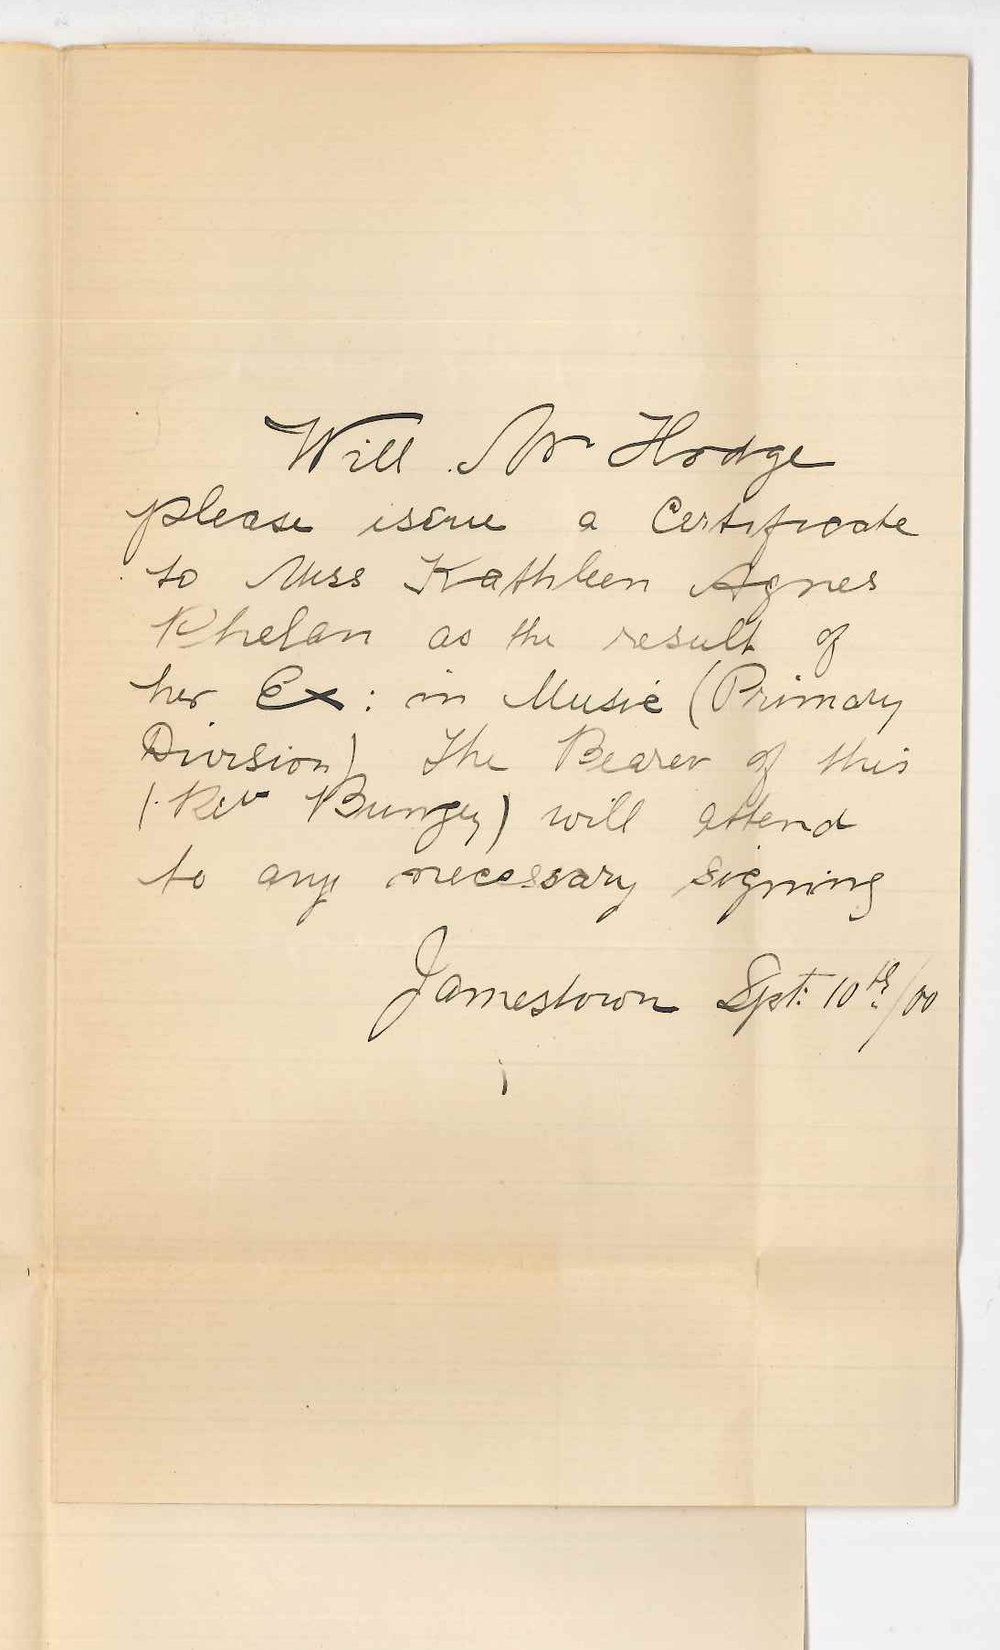 Will Mr Hodge
please issue a Certificate
to Miss Kathleen Agnes
Phelan as the result of
her Ex: in Music (Primary
Division) The Bearer of this
(Rev Bungey) will attend
to any necessary signing
Jamestown Spt: 10th/00